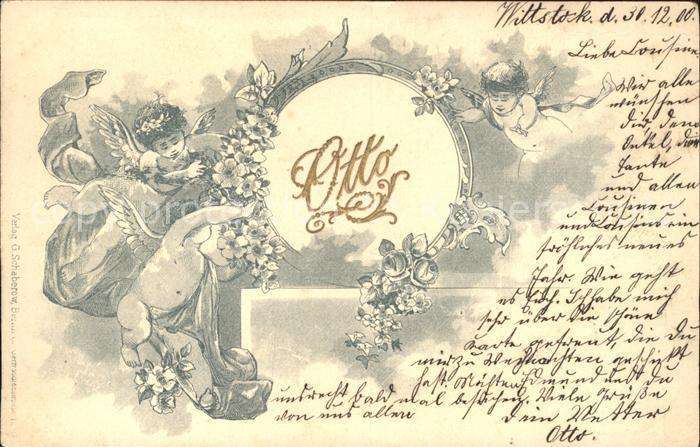 Wittstock. d. 30.12.00.
Liebe Cousine
Wir alle
wünschen
dir, dem
Onkel, der
Tante
und allen
Cousinen
und Cousins ein
fröhliches neues
Jahr. Wie geht
es Euch. Ich habe mich
sehr über die schöne
Karte gefreut, die Du
mir zu Weihnachten geschickt
hast. und
uns recht bald mal besuchen. Viele Grüße
von uns allen
Dein Vetter
Otto.
Otto
Verlag G. Schaberow, Berlin